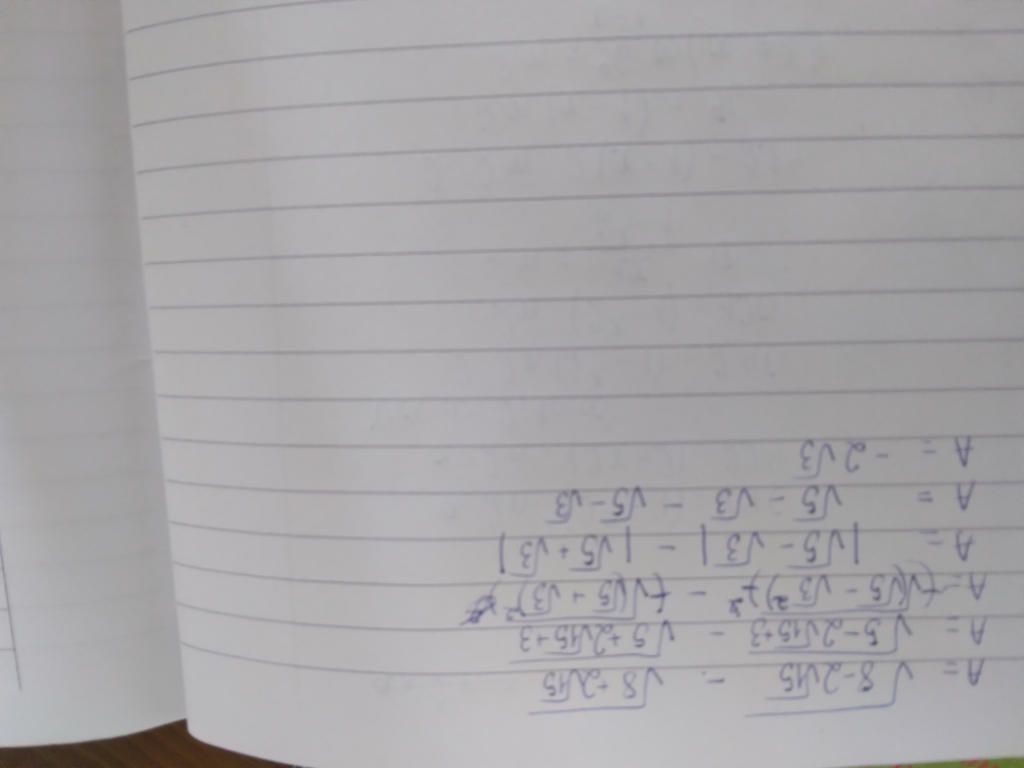 A = √8-2√15 - √8+2√15
A = √5-2√15+3 - √5+2√15+3
A = √(√5-√3)² - √(√5+√3)²
A = |√5-√3| - |√5+√3|
A = √5-√3 - √5-√3
A = -2√3